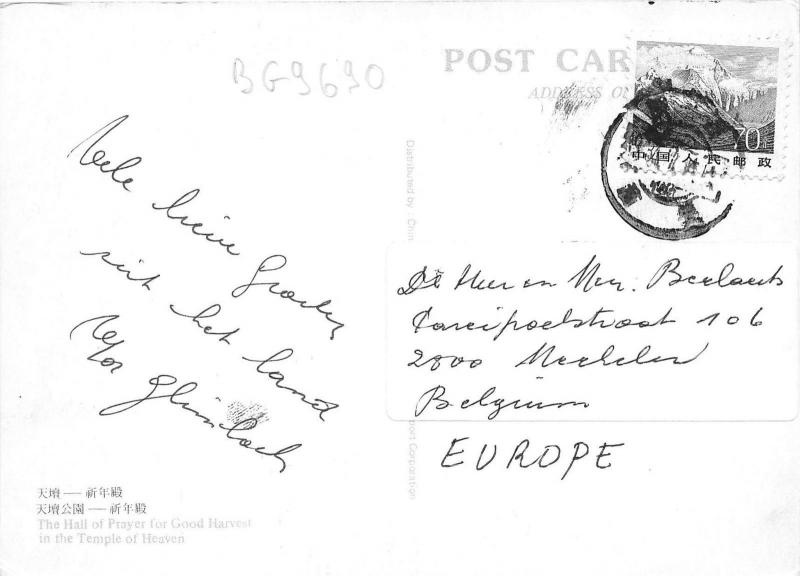 BG9690
POST CAR
ADDRESS ON
70
中国人民邮政
Vele lieve groeten
uit het land
van
glimlach
Distributed by : Chin
port Corporation
De Heer en Mevr. Beelaerts
straat 106
2800 Mechelen
Belgium
EUROPE
天壇 — 祈年殿
天壇公園 — 祈年殿
The Hall of Prayer for Good Harvest
in the Temple of Heaven